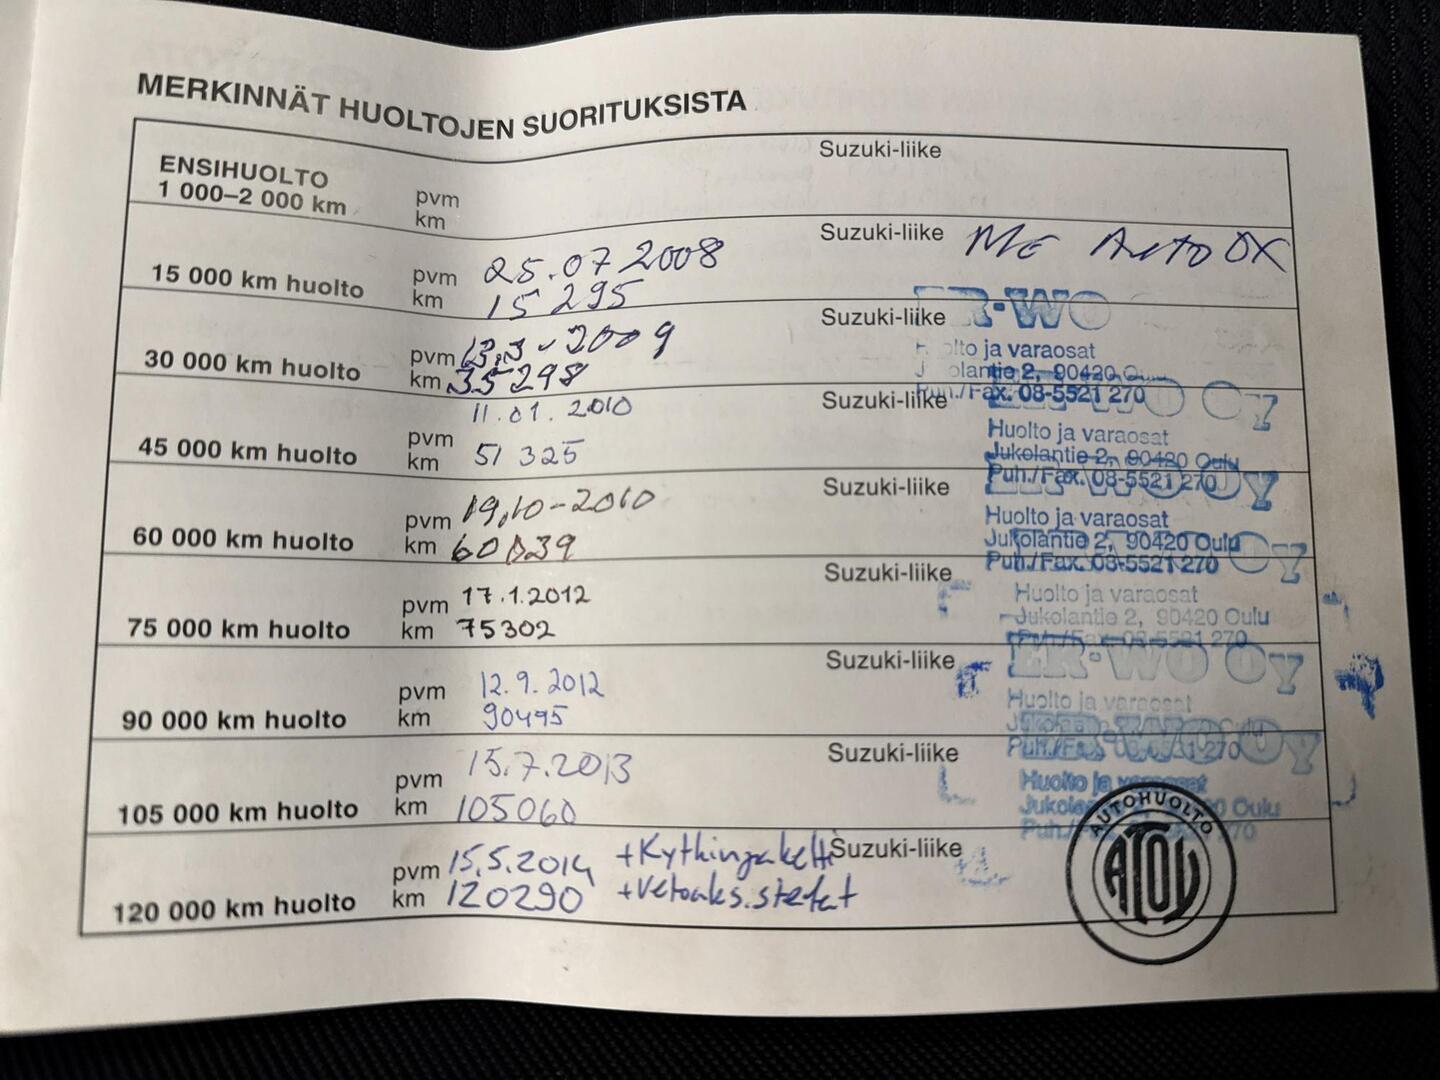 MERKINNÄT HUOLTOJEN SUORITUKSISTA
ENSIHUOLTO
1 000–2 000 km
pvm
km
Suzuki-liike
15 000 km huolto
pvm 25.07 2008
km 15 295
Suzuki-liike
30 000 km huolto
pvm 13.3-2009
km 35298
Suzuki-liike
ER-WO
Huolto ja varaosat
Jukolantie 2, 90420 Oulu
Puh./Fax. 08-5521 270
45 000 km huolto
11.01.2010
pvm
km 51 325
Suzuki-liike
ER-WO OY
Huolto ja varaosat
Jukolantie 2, 90420 Oulu
Puh./Fax. 08-5521 270
60 000 km huolto
pvm 19.10-2010
km
Suzuki-liike
ER-WO OY
Huolto ja varaosat
Jukolantie 2, 90420 Oulu
Puh./Fax. 08-5521 270
75 000 km huolto
pvm 17.1.2012
km 75302
Suzuki-liike
Huolto ja varaosat
Jukolantie 2, 90420 Oulu
Puh./Fax. 08-5521 270
90 000 km huolto
pvm 12.9.2012
km 90495
Suzuki-liike
ER-WO OY
Huolto ja varaosat
Puh./Fax. 08-5521 270
105 000 km huolto
pvm 15.7.2013
km 105060
Suzuki-liike
ER-WO OY
Huolto ja varaosat
Jukolantie 2, 90420 Oulu
Puh./
120 000 km huolto
pvm 15.5.2014 +Kythinpaketti
km 120290 +Vetoaks.stefat
Suzuki-liike
AUTOHUOLTO
ATOY